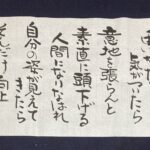 気がついたら
意地も張らんと
素直に頭下げる
人間になりなはれ
自分の姿が見えて
きたら
それだけ向上